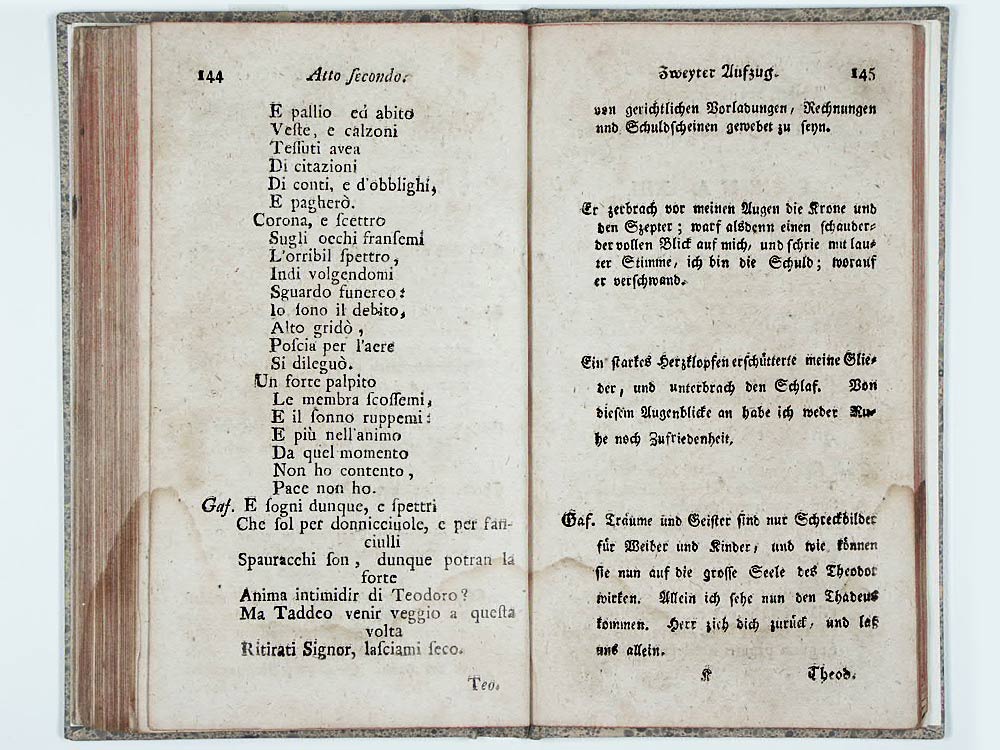 144 Atto ſecondo.
E pallio ed abito
Veſte, e calzoni
Teſſuti avea
Di citazioni
Di conti, e d'obblighi,
E pagherò.
Corona, e ſcettro
Sugli occhi franſemi
L'orribil ſpettro,
Indi volgendomi
Sguardo funereo:
Io ſono il debito,
Alto gridò,
Poſcia per l'aere
Si dileguò.
Un forte palpito
Le membra ſcoſſemi,
E il ſonno ruppemi:
E più nell'animo
Da quel momento
Non ho contento,
Pace non ho.
Gaf. E ſogni dunque, e ſpettri
Che ſol per donnicciuole, e per fan-
ciulli
Spauracchi ſon, dunque potran la
forte
Anima intimidir di Teodoro?
Ma Taddeo venir veggio a queſta
volta
Ritirati Signor, laſciami ſeco.
Teo.
Zweyter Aufzug. 145
von gerichtlichen Vorladungen, Rechnungen
und Schuldſcheinen gewebet zu ſeyn.
Er zerbrach vor meinen Augen die Krone und
den Szepter; warf alsdenn einen ſchauder-
dervollen Blick auf mich, und ſchrie mit lau-
ter Stimme, ich bin die Schuld; worauf
er verſchwand.
Ein ſtarkes Herzklopfen erſchütterte meine Glie-
der, und unterbrach den Schlaf. Von
dieſem Augenblicke an habe ich weder Ru-
he noch Zufriedenheit.
Gaf. Träume und Geiſter ſind nur Schreckbilder
für Weiber und Kinder, und wie können
ſie nun auf die groſſe Seele des Theodor
wirken. Allein ich ſehe nun den Thadeus
kommen. Herr zieh dich zurück, und laß
uns allein.
K Theod.